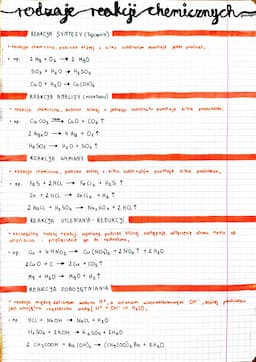 rodzaje reakcji chemicznych
REAKCJA SYNTEZY (łączenia)
• reakcja chemiczna, podczas której z kilku substratów powstaje jeden produkt.
• np. 2 Mg + O₂ → 2 MgO
SO₃ + H₂O → H₂SO₄
CaO + H₂O → Ca(OH)₂
REAKCJA ANALIZY (rozkładu)
• reakcja chemiczna, podczas której z jednego substratu powstaje kilka produktów.
• np. CaCO₃ → CaO + CO₂ ↑
2 Ag₂O → 4 Ag + O₂ ↑
H₂SO₃ → H₂O + SO₂ ↑
REAKCJA WYMIANY
• reakcja chemiczna, podczas której z kilku substratów powstaje kilka produktów.
• np. FeS + 2 HCl → FeCl₂ + H₂S ↑
Zn + 2 HCl → ZnCl₂ + H₂ ↑
2 NaCl + H₂SO₄ → Na₂SO₄ + 2 HCl ↑
REAKCJA UTLENIANIA - REDUKCJI
• szczególny rodzaj reakcji wymiany, podczas której następuje odłączenie atomu tlenu od
utleniacza i przyłączenie go do reduktora,
• np. Cu + 4 HNO₃ → Cu(NO₃)₂ + 2 NO₂ ↑ + 2 H₂O
2 CuO + C → 2 Cu + CO₂ ↑
Mg + H₂O → MgO + H₂ ↑
REAKCJA ZOBOJĘTNIANIA
• reakcja między kationami wodoru H⁺, a anionami wodorotlenkowymi OH⁻, której produktem
jest cząsteczka wody (H⁺ + OH⁻ → H₂O),
• np. HCl + NaOH → NaCl + H₂O
H₂SO₄ + 2 KOH → K₂SO₄ + 2 H₂O
2 CH₃COOH + Ba(OH)₂ → (CH₃COO)₂Ba + 2 H₂O